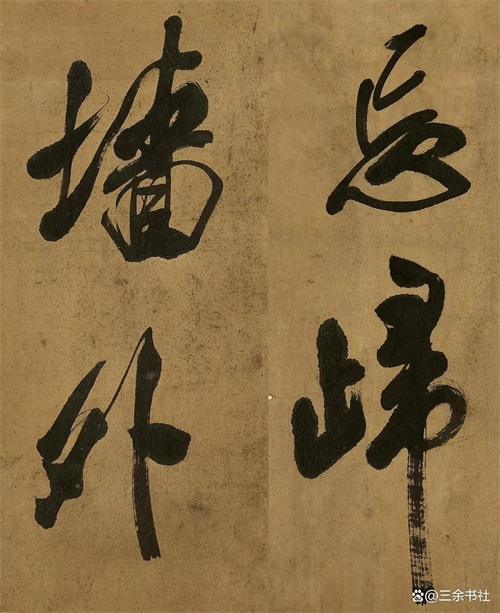 忘歸
墙外
三余书社